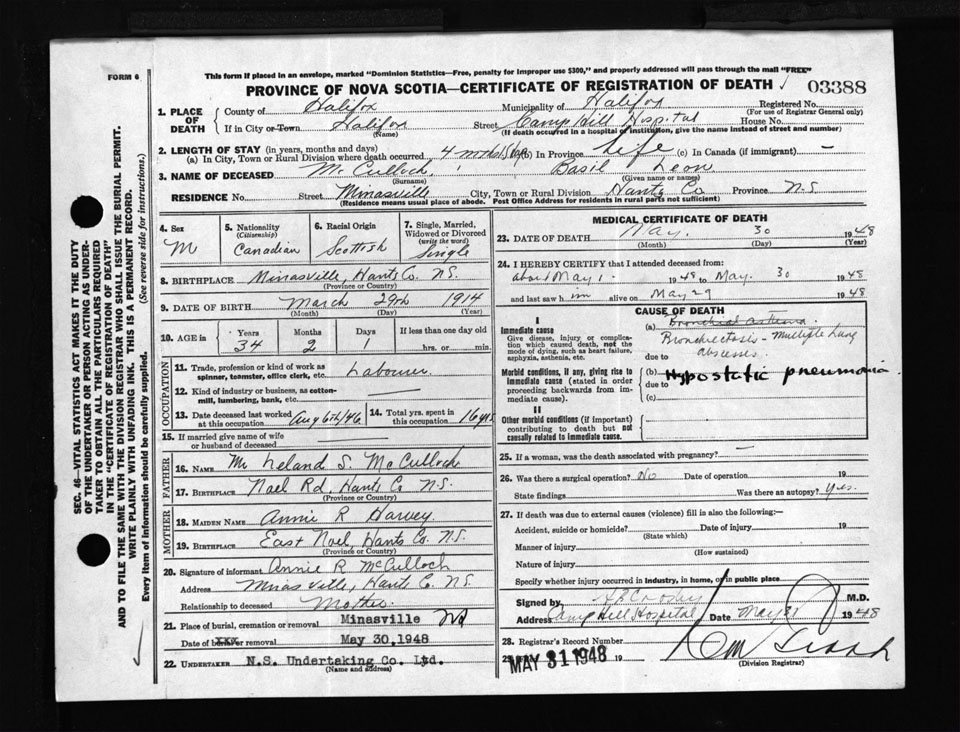 FORM 6
This form if placed in an envelope, marked "Dominion Statistics—Free, penalty for improper use $300," and properly addressed will pass through the mail "FREE"
PROVINCE OF NOVA SCOTIA—CERTIFICATE OF REGISTRATION OF DEATH
03388
1. PLACE OF DEATH
County of Halifax Municipality of Halifax Registered No.
(For use of Registrar General only)
If in City or Town Halifax Street Camp Hill Hospital House No.
(Name) (If death occurred in a hospital or institution, give the name instead of street and number)
2. LENGTH OF STAY (in years, months and days)
(a) In City, Town or Rural Division where death occurred 4 mths (b) In Province Life (c) In Canada (if immigrant) —
3. NAME OF DECEASED McCulloch, Basil Leon
(Surname) (Given name or names)
RESIDENCE No. Street Minasville City, Town or Rural Division Hants Co Province N.S
(Residence means usual place of abode. Post Office Address for residents in rural parts not sufficient)
4. Sex M
5. Nationality (Citizenship) Canadian
6. Racial Origin Scottish
7. Single, Married, Widowed or Divorced (write the word) Single
8. BIRTHPLACE Minasville, Hants Co. N.S.
(Province or Country)
9. DATE OF BIRTH March 29th 1914
(Month) (Day) (Year)
10. AGE in Years 34 Months 2 Days 1 If less than one day old hrs. or min.
OCCUPATION
11. Trade, profession or kind of work as spinner, teamster, office clerk, etc. Labourer
12. Kind of industry or business, as cotton-mill, lumbering, bank, etc.
13. Date deceased last worked at this occupation Aug 6th/46
14. Total yrs. spent in this occupation 16 yrs.
15. If married give name of wife or husband of deceased
FATHER
16. NAME Mr Leland S. McCulloch
17. BIRTHPLACE Noel Rd, Hants Co N.S.
(Province or Country)
MOTHER
18. MAIDEN NAME Annie R Harvey
19. BIRTHPLACE East Noel, Hants Co. N.S.
(Province or Country)
20. Signature of informant Annie R McCulloch
Address Minasville, Hants Co. N.S
Relationship to deceased Mother.
21. Place of burial, cremation or removal Minasville
Date of burial or removal May 30,1948
22. UNDERTAKER N.S. Undertaking Co. Ltd.
(Name and address)
MEDICAL CERTIFICATE OF DEATH
23. DATE OF DEATH May. 30 1948
(Month) (Day) (Year)
24. I HEREBY CERTIFY that I attended deceased from:
about May 1. 1948 to May. 30 1948
and last saw him alive on May 29 1948
CAUSE OF DEATH
I
Immediate cause
Give disease, injury or complication which caused death, not the mode of dying, such as heart failure, asphyxia, asthenia, etc.
(a) Bronchial asthma.
Bronchiectosis - Multiple Lung
due to abscesses.
Morbid conditions, if any, giving rise to immediate cause (stated in order proceeding backwards from immediate cause).
(b) Hypostatic pneumonia
due to
(c)
II
Other morbid conditions (if important) contributing to death but not causally related to immediate cause.
25. If a woman, was the death associated with pregnancy? —
26. Was there a surgical operation? No Date of operation 19
State findings Was there an autopsy? Yes.
27. If death was due to external causes (violence) fill in also the following:
Accident, suicide or homicide? Date of injury 19
(State which)
Manner of injury
(How sustained)
Nature of injury
Specify whether injury occurred in industry, in home, or in public place
Signed by Crosby M.D.
Address Camp Hill Hospital Date May 31 1948
28. Registrar's Record Number
29. MAY 31 1948 19
(Division Registrar)
SEC. 46—VITAL STATISTICS ACT MAKES IT THE DUTY
OF THE UNDERTAKER OR PERSON ACTING AS UNDER-
TAKER TO OBTAIN ALL THE PARTICULARS REQUIRED
IN THE "CERTIFICATE OF REGISTRATION OF DEATH"
AND TO FILE THE SAME WITH THE DIVISION REGISTRAR WHO SHALL ISSUE THE BURIAL PERMIT.
WRITE PLAINLY WITH UNFADING INK. THIS IS A PERMANENT RECORD.
Every item of information should be carefully supplied. (See reverse side for instructions.)